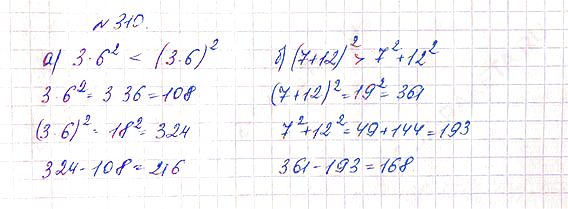 № 310.
а) 3·6² < (3·6)²
3·6² = 3 36 = 108
(3·6)² = 18² = 324
324 - 108 = 216
б) (7+12)² > 7² + 12²
(7+12)² = 19² = 361
7² + 12² = 49 + 144 = 193
361 - 193 = 168